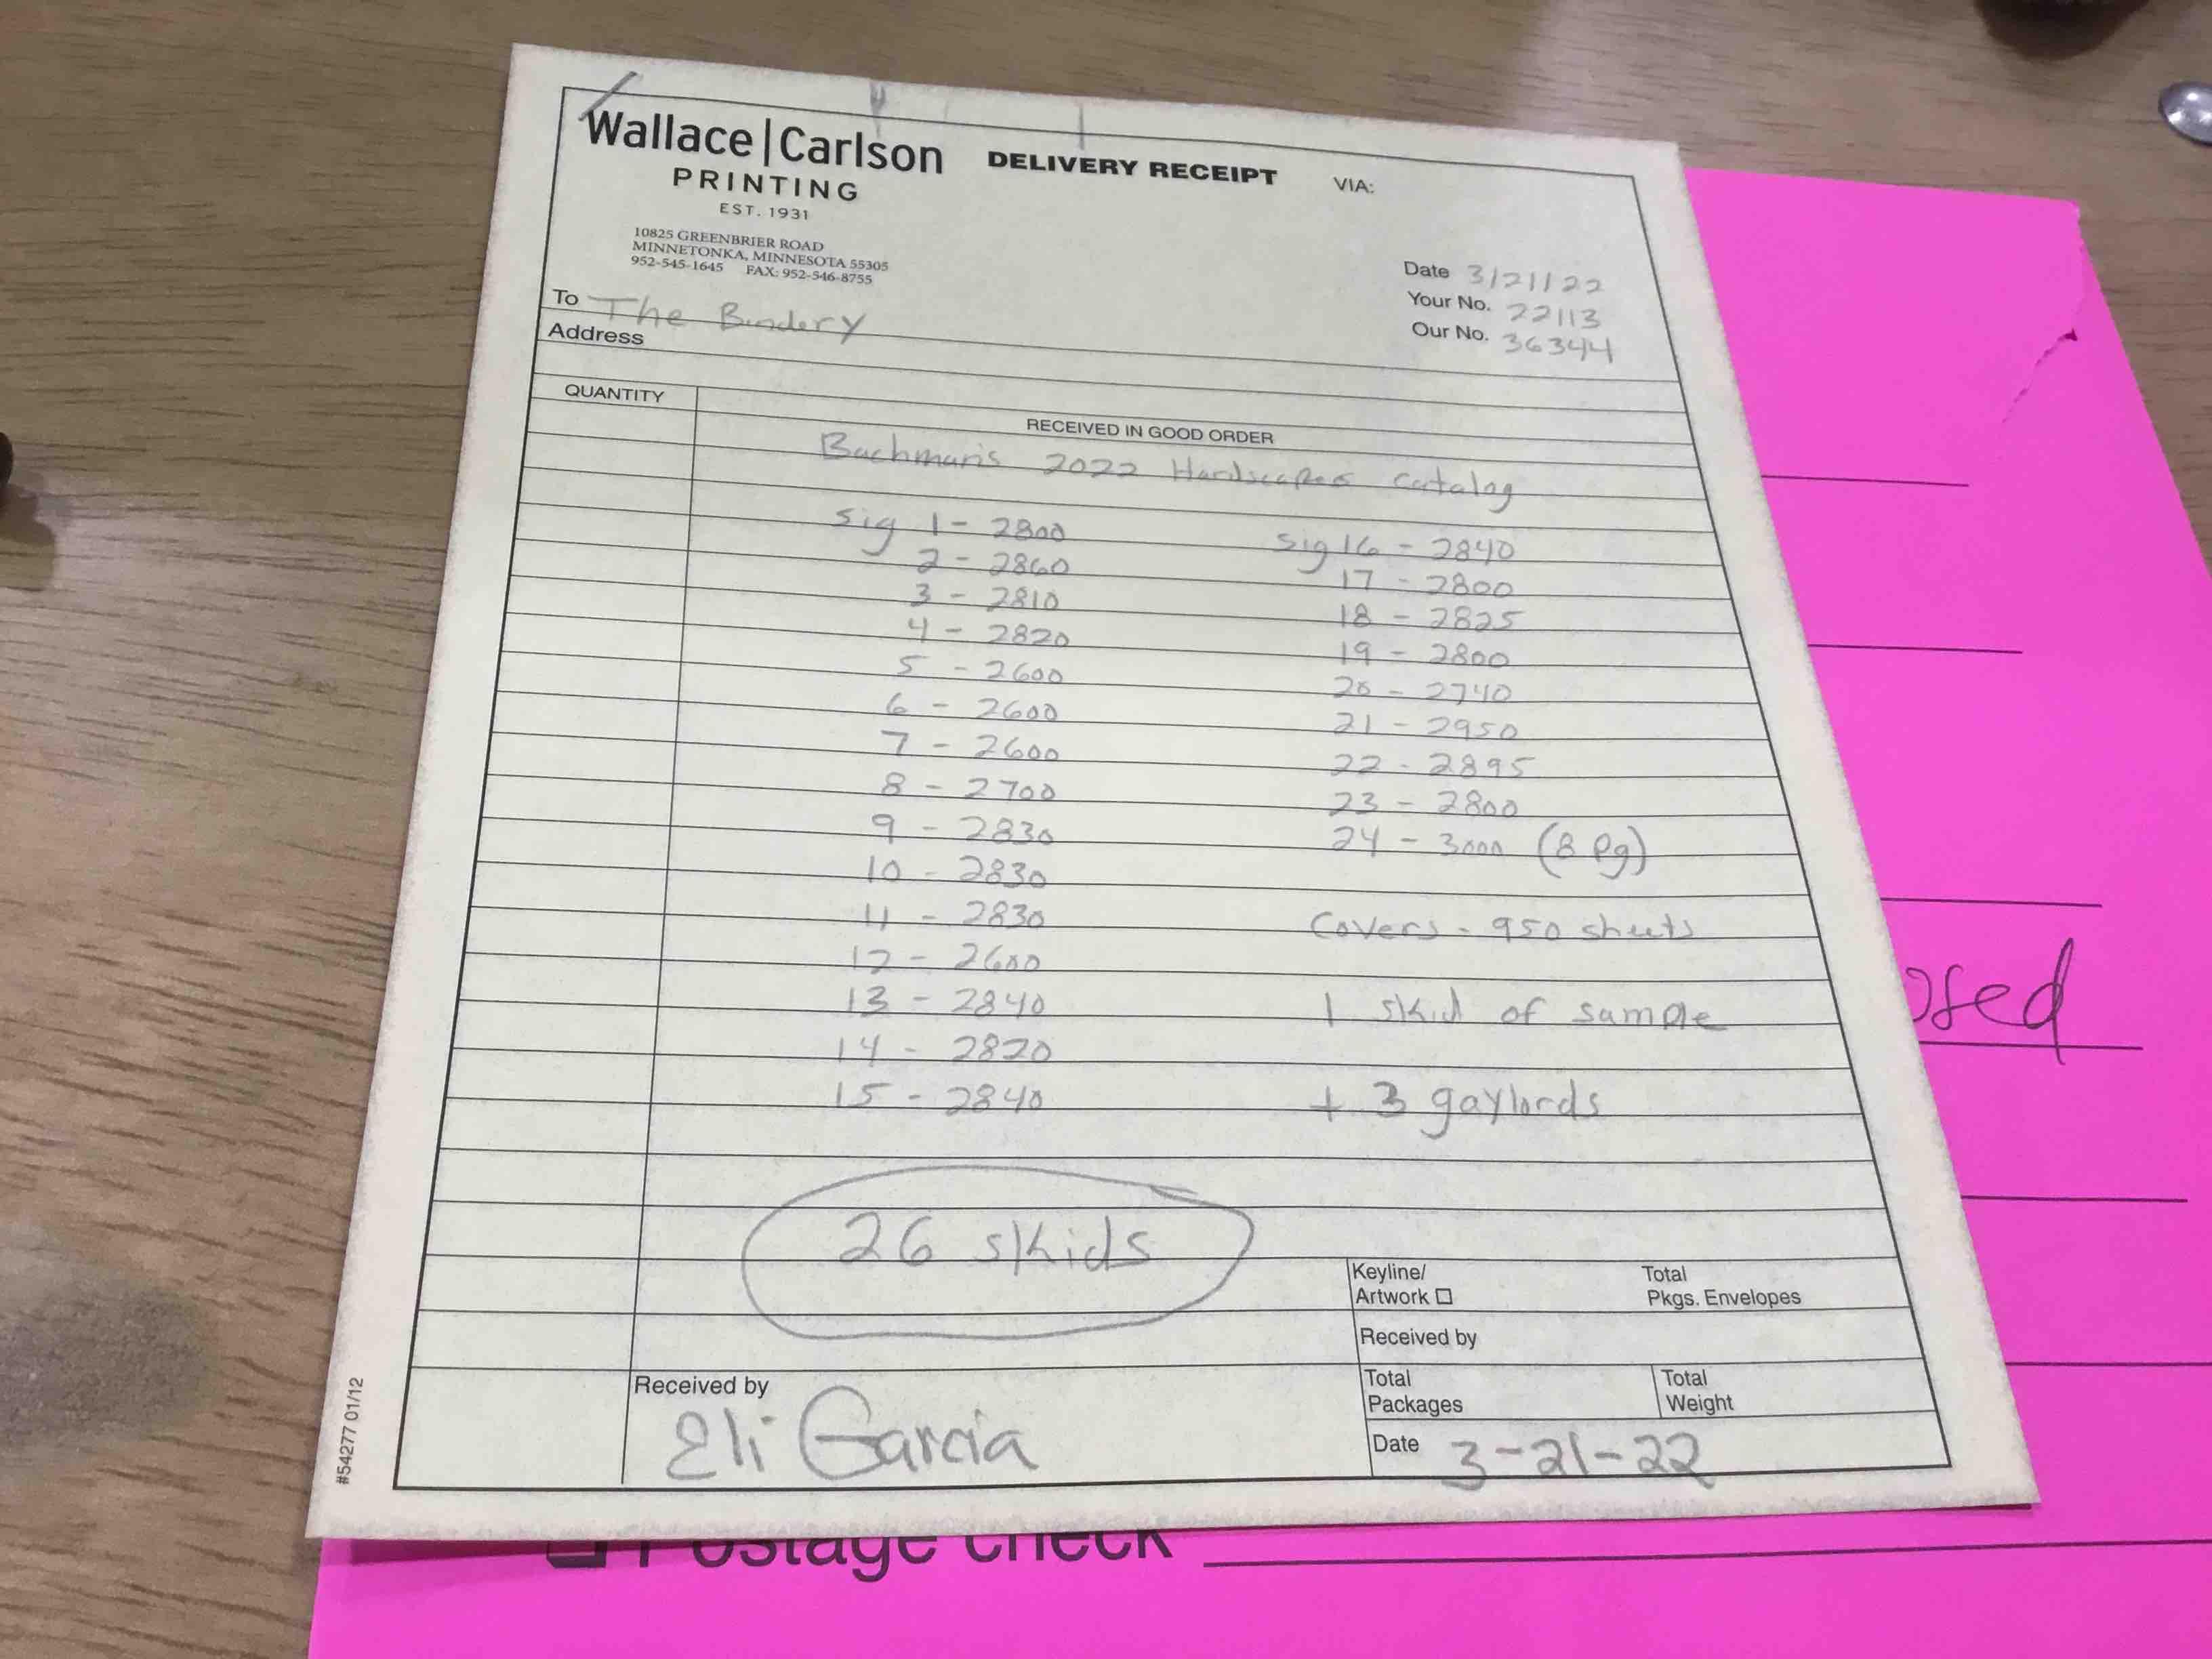 Wallace|Carlson
PRINTING
EST. 1931
10825 GREENBRIER ROAD
MINNETONKA, MINNESOTA 55305
952-545-1645 FAX: 952-546-8755
DELIVERY RECEIPT
VIA:
Date 3/21/22
Your No. 22113
Our No. 36344
To The Bindery
Address
QUANTITY
RECEIVED IN GOOD ORDER
Bachman's 2022 Hardscapes Catalog
Sig 1 - 2800
2 - 2860
3 - 2810
4 - 2820
5 - 2600
6 - 2600
7 - 2600
8 - 2700
9 - 2830
10 - 2830
11 - 2830
12 - 2600
13 - 2840
14 - 2820
15 - 2840
Sig 16 - 2840
17 - 2800
18 - 2825
19 - 2800
20 - 2740
21 - 2950
22 - 2895
23 - 2800
24 - 3000 (8 pg)
Covers - 950 sheets
1 skid of sample
+ 3 gaylords
26 skids
Keyline/
Artwork
Total
Pkgs. Envelopes
Received by
Total
Packages
Total
Weight
Date 3-21-22
Received by
Eli Garcia
#54277 01/12
Postage check